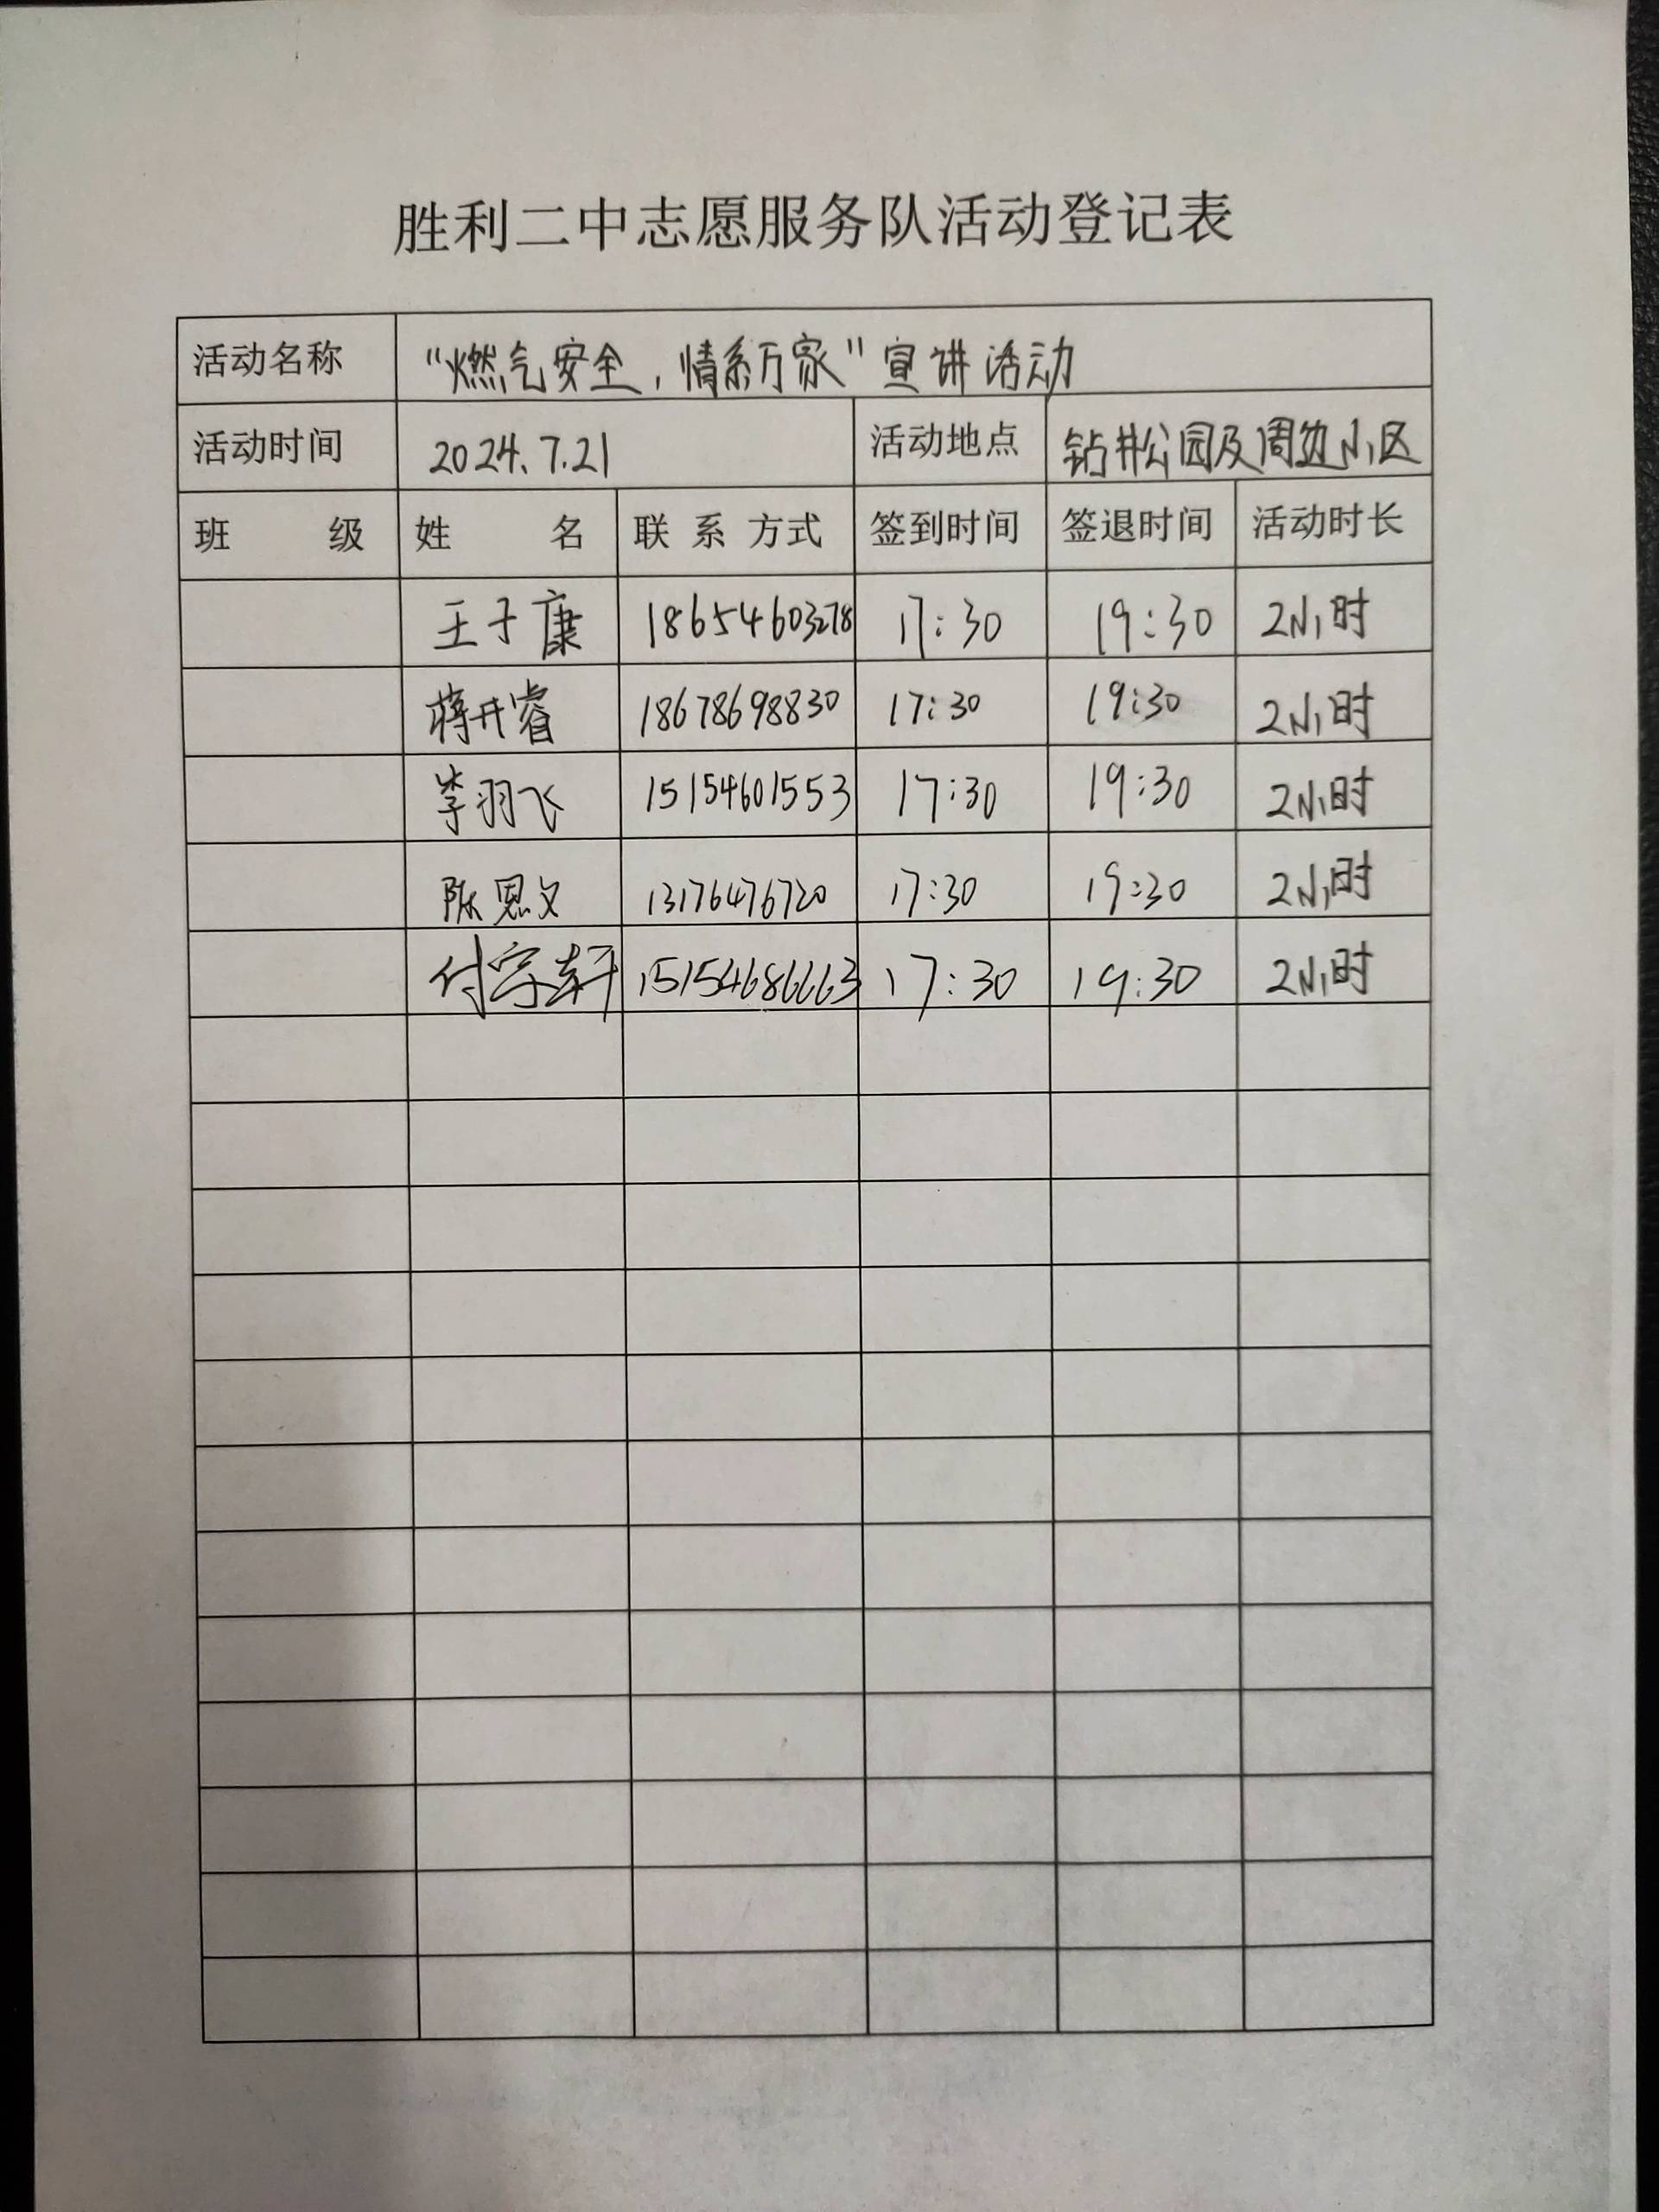 胜利二中志愿服务队活动登记表
活动名称 “燃气安全，情系万家”宣讲活动
活动时间 2024.7.21 活动地点 钻井公园及周边小区
班 级 姓 名 联 系 方式 签到时间 签退时间 活动时长
王子康 18654603278 17:30 19:30 2小时
蒋开睿 18678698830 17:30 19:30 2小时
李羽飞 15154601553 17:30 19:30 2小时
陈恩文 13176476720 17:30 19:30 2小时
付宇轩 15154686663 17:30 19:30 2小时